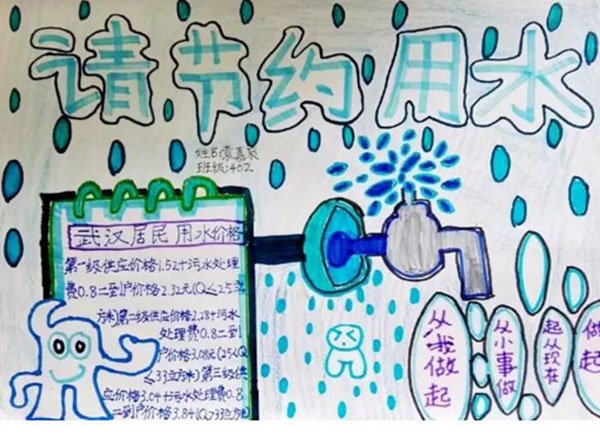 请节约用水
姓名:袁嘉
班级:402
武汉居民用水价格
第一级供应价格1.52十污水处理
费0.8二到户价格2.32元(Q≤25立
方米)第二级供应价格2.28十污水
处理费0.8二到
户价格3.08元(25<Q
≤33立方米)第三级供
应价格3.04十污水处理费0.8
二到户价格3.84(Q>33立方
从我做起
从小事做
起从现在
做起